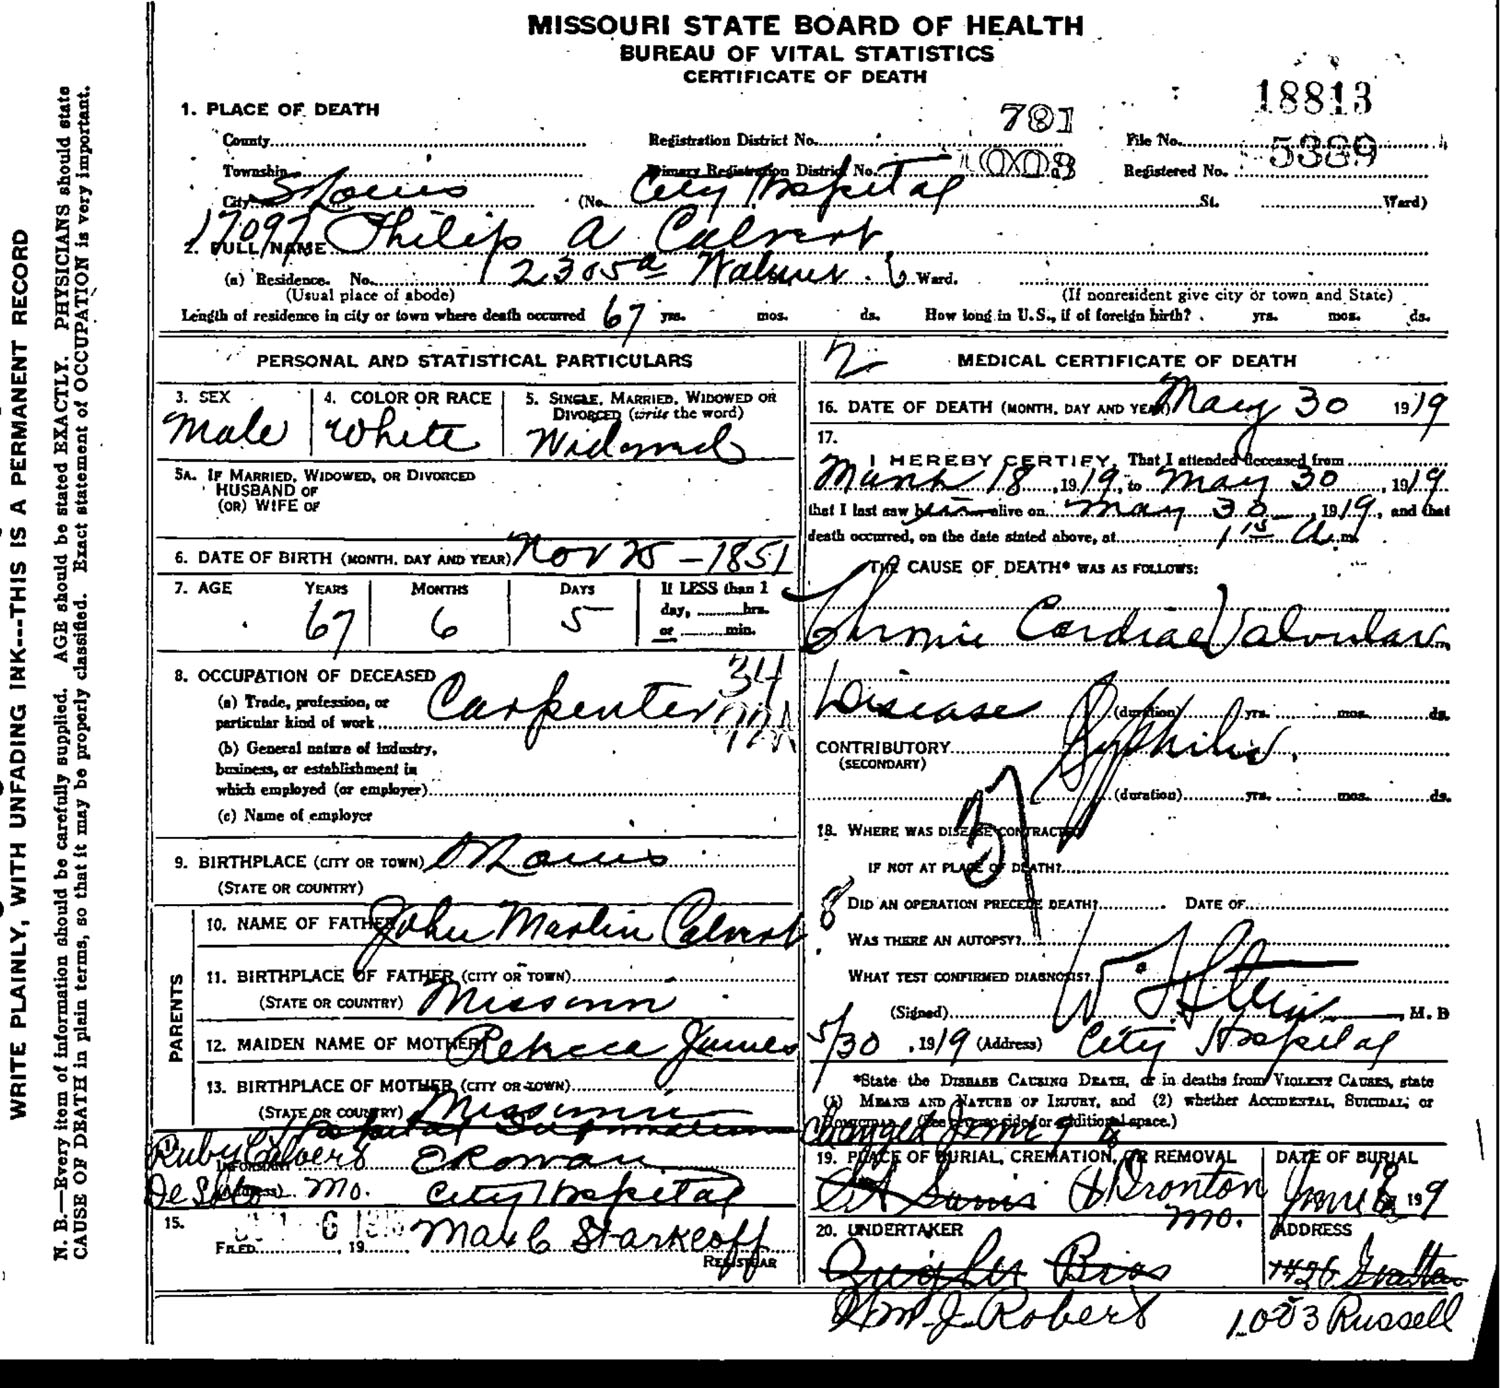 MISSOURI STATE BOARD OF HEALTH
BUREAU OF VITAL STATISTICS
CERTIFICATE OF DEATH
WRITE PLAINLY, WITH UNFADING INK---THIS IS A PERMANENT RECORD
N. B.—Every item of information should be carefully supplied. AGE should be stated EXACTLY. PHYSICIANS should state
CAUSE OF DEATH in plain terms, so that it may be properly classified. Exact statement of OCCUPATION is very important.
1. PLACE OF DEATH
18813
County
Registration District No. 781
File No.
Township
Primary Registration District No. 1003
Registered No. 5389
City St Louis (No. City Hospital St. Ward)
17097
2. FULL NAME Philip A Calvert
(a) Residence. No. 2305a Walnut 6 Ward.
(Usual place of abode) (If nonresident give city or town and State)
Length of residence in city or town where death occurred 67 yrs. mos. ds. How long in U.S., if of foreign birth? yrs. mos. ds.
PERSONAL AND STATISTICAL PARTICULARS
3. SEX Male
4. COLOR OR RACE White
5. SINGLE, MARRIED, WIDOWED OR DIVORCED (write the word) Widowed
5A. IF MARRIED, WIDOWED, OR DIVORCED
HUSBAND OF
(OR) WIFE OF
6. DATE OF BIRTH (MONTH, DAY AND YEAR) Nov 25 - 1851
7. AGE YEARS 67 MONTHS 6 DAYS 5 If LESS than 1 day, hrs. or min.
8. OCCUPATION OF DECEASED
(a) Trade, profession, or
particular kind of work Carpenter
34
(b) General nature of industry,
business, or establishment in
which employed (or employer)
(c) Name of employer
9. BIRTHPLACE (CITY OR TOWN) St Louis
(STATE OR COUNTRY)
PARENTS
10. NAME OF FATHER John Martin Calvert
11. BIRTHPLACE OF FATHER (CITY OR TOWN)
(STATE OR COUNTRY) Missouri
12. MAIDEN NAME OF MOTHER Rebecca James
13. BIRTHPLACE OF MOTHER (CITY OR TOWN)
(STATE OR COUNTRY) Missouri
Hospital Information
14. Ruby Calvert
INFORMANT E Rowan
(Address) De Soto Mo. City Hospital
15. FILED 6 19 Max C Starkloff
REGISTRAR
2 MEDICAL CERTIFICATE OF DEATH
16. DATE OF DEATH (MONTH, DAY AND YEAR) May 30 1919
17.
I HEREBY CERTIFY, That I attended deceased from
March 18, 1919, to May 30, 1919
that I last saw him alive on May 30, 1919, and that
death occurred, on the date stated above, at 1 15 A.m.
THE CAUSE OF DEATH* WAS AS FOLLOWS:
Chronic Cardiac Valvular
Disease (duration) yrs. mos. ds.
CONTRIBUTORY Syphilis.
(SECONDARY)
(duration) yrs. mos. ds.
37
18. WHERE WAS DISEASE CONTRACTED
IF NOT AT PLACE OF DEATH?
8
DID AN OPERATION PRECEDE DEATH? DATE OF
WAS THERE AN AUTOPSY?
WHAT TEST CONFIRMED DIAGNOSIS?
(Signed) M. D
5/30, 1919 (Address) City Hospital
*State the DISEASE CAUSING DEATH, or in deaths from VIOLENT CAUSES, state
(1) MEANS AND NATURE OF INJURY, and (2) whether ACCIDENTAL, SUICIDAL, or
HOMICIDAL. (See reverse side for additional space.)
Changed June 9
19. PLACE OF BURIAL, CREMATION, OR REMOVAL
St Louis Ironton
Mo.
DATE OF BURIAL
June 19 9
20. UNDERTAKER
Quigley Bros
Wm. J. Robert
ADDRESS
1426 Grattan
1003 Russell